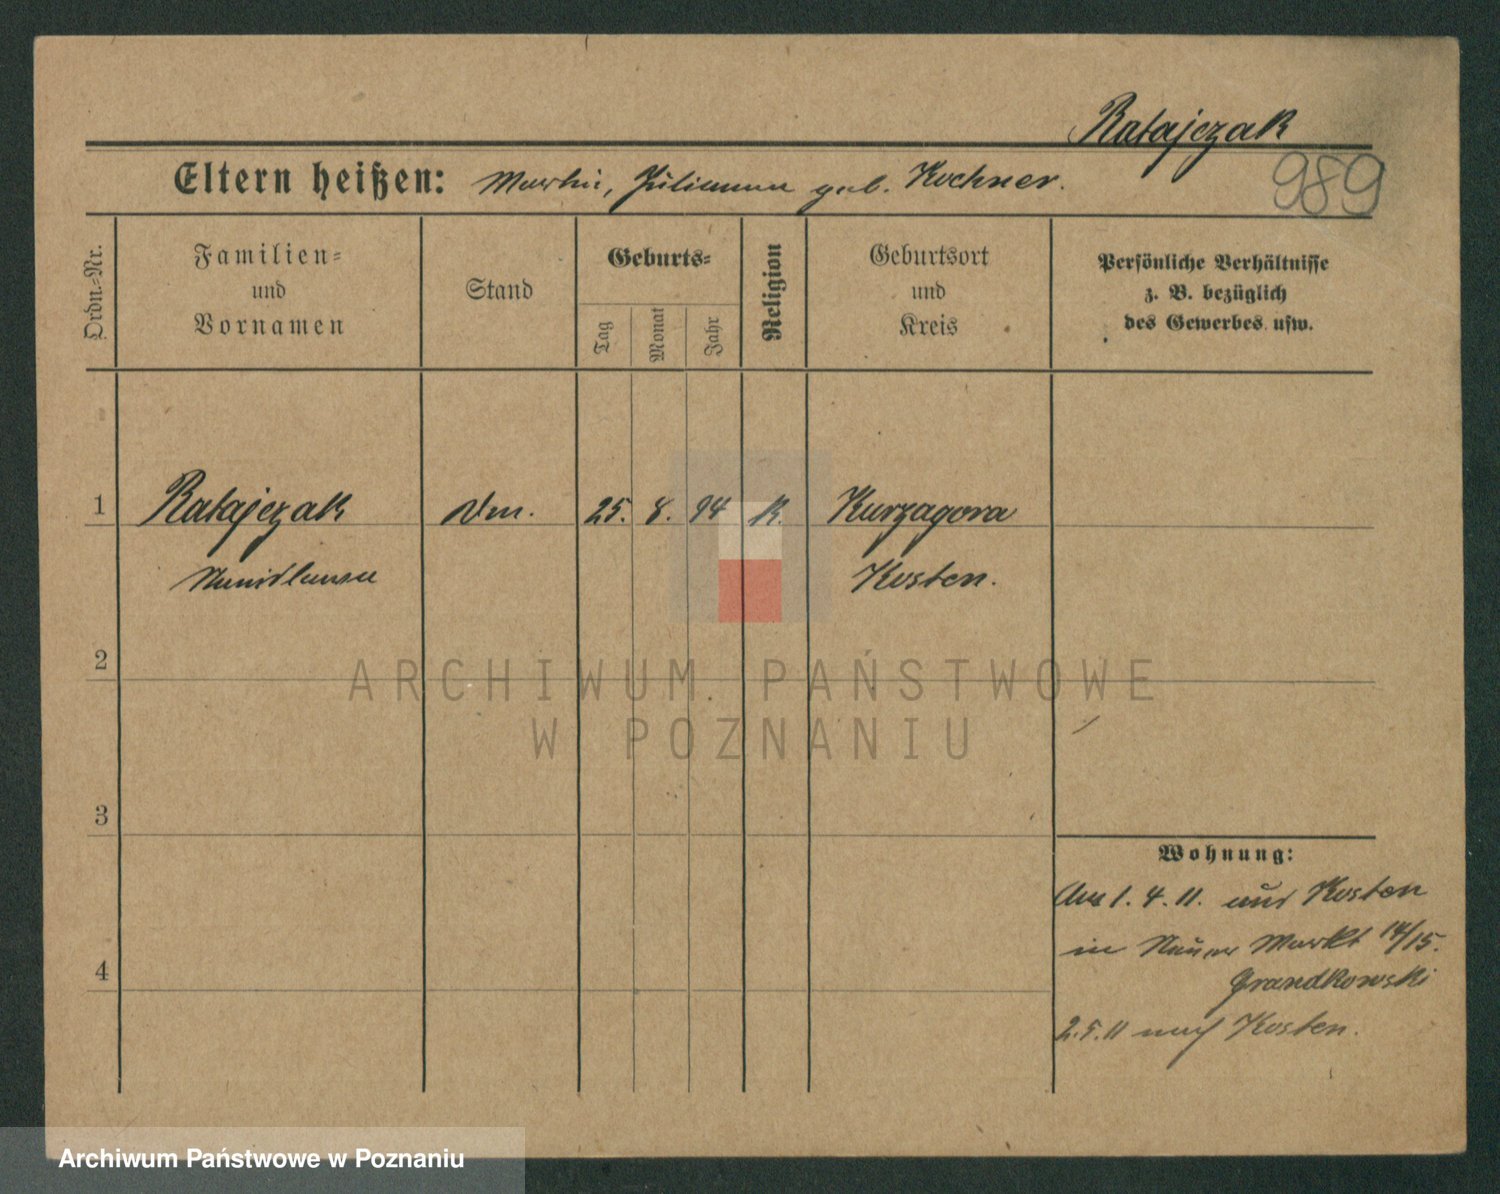 Ratajczak
989
Eltern heißen: Martin, Julianna geb. Kochner.
Ordn.=Nr.
Familien=
und
Vornamen
Stand
Geburts=
Tag
Monat
Jahr
Religion
Geburtsort
und
Kreis
Persönliche Verhältnisse
z. B. bezüglich
des Gewerbes usw.
1 Ratajczak 25. 8. 94 K. Kurzagora
Stanislawa Kosten.
2
3
4
Wohnung:
Am 1. 4. 11. aus Kosten
in Neuer Markt 14/15.
Grandkowski
2.5.11 nach Kosten.
ARCHIWUM PAŃSTWOWE
W POZNANIU
Archiwum Państwowe w Poznaniu